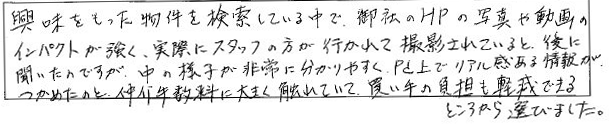 興味をもった物件を検索している中で、御社のHPの写真や動画の
インパクトが強く、実際にスタッフの方が行かれて撮影されていると、後に
聞いたのですが、中の様子が非常に分かりやすく、PC上でリアル感ある情報が
つかめたのと、仲介手数料に大きく触れていて、買い手の負担も軽減できる
ところから選びました。